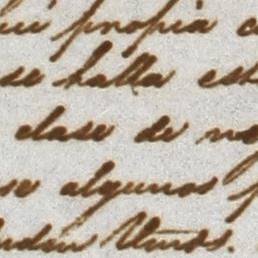 propia
se halla est
clase de
se algunos
Vmds.